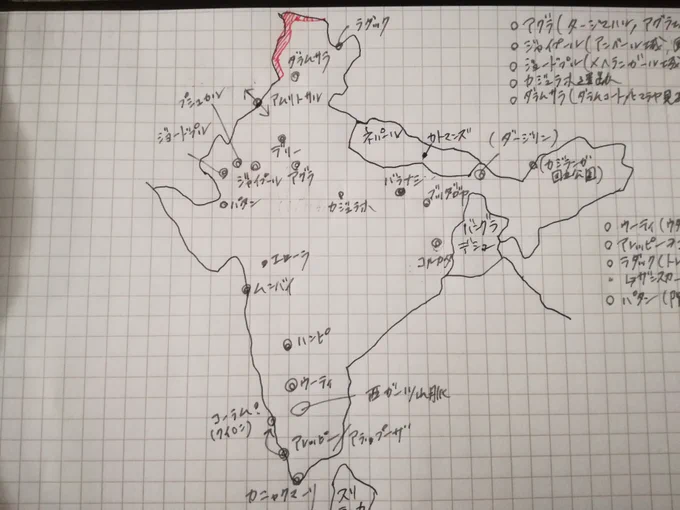 ○ アグラ(タージマハル, アグラ
○ ジャイプール(アンバール城,
○ ジョードプル(メヘランガール城
○ カジュラホ
○ ダラムサラ(ダラムコート
ラダック
ダラムサラ
プシュカル
アムリトサル
ジョードプル
デリー
ネパール
カトマンズ
(ダージリン)
(カジランガ
国立公園)
ジャイプール
アグラ
バラナシ
ブッダガヤ
カジュラホ
パタン
バングラ
デシュ
コルカタ
エローラ
ムンバイ
○ ウーティ(ウ
○ アレッピー
○ ラダック(トレ
○ パタン(
ハンピ
ウーティ
西ガーツ山脈
コーラム?
(クイロン)
アレッピー/アラップーザ
カニャクマーリ
スリ